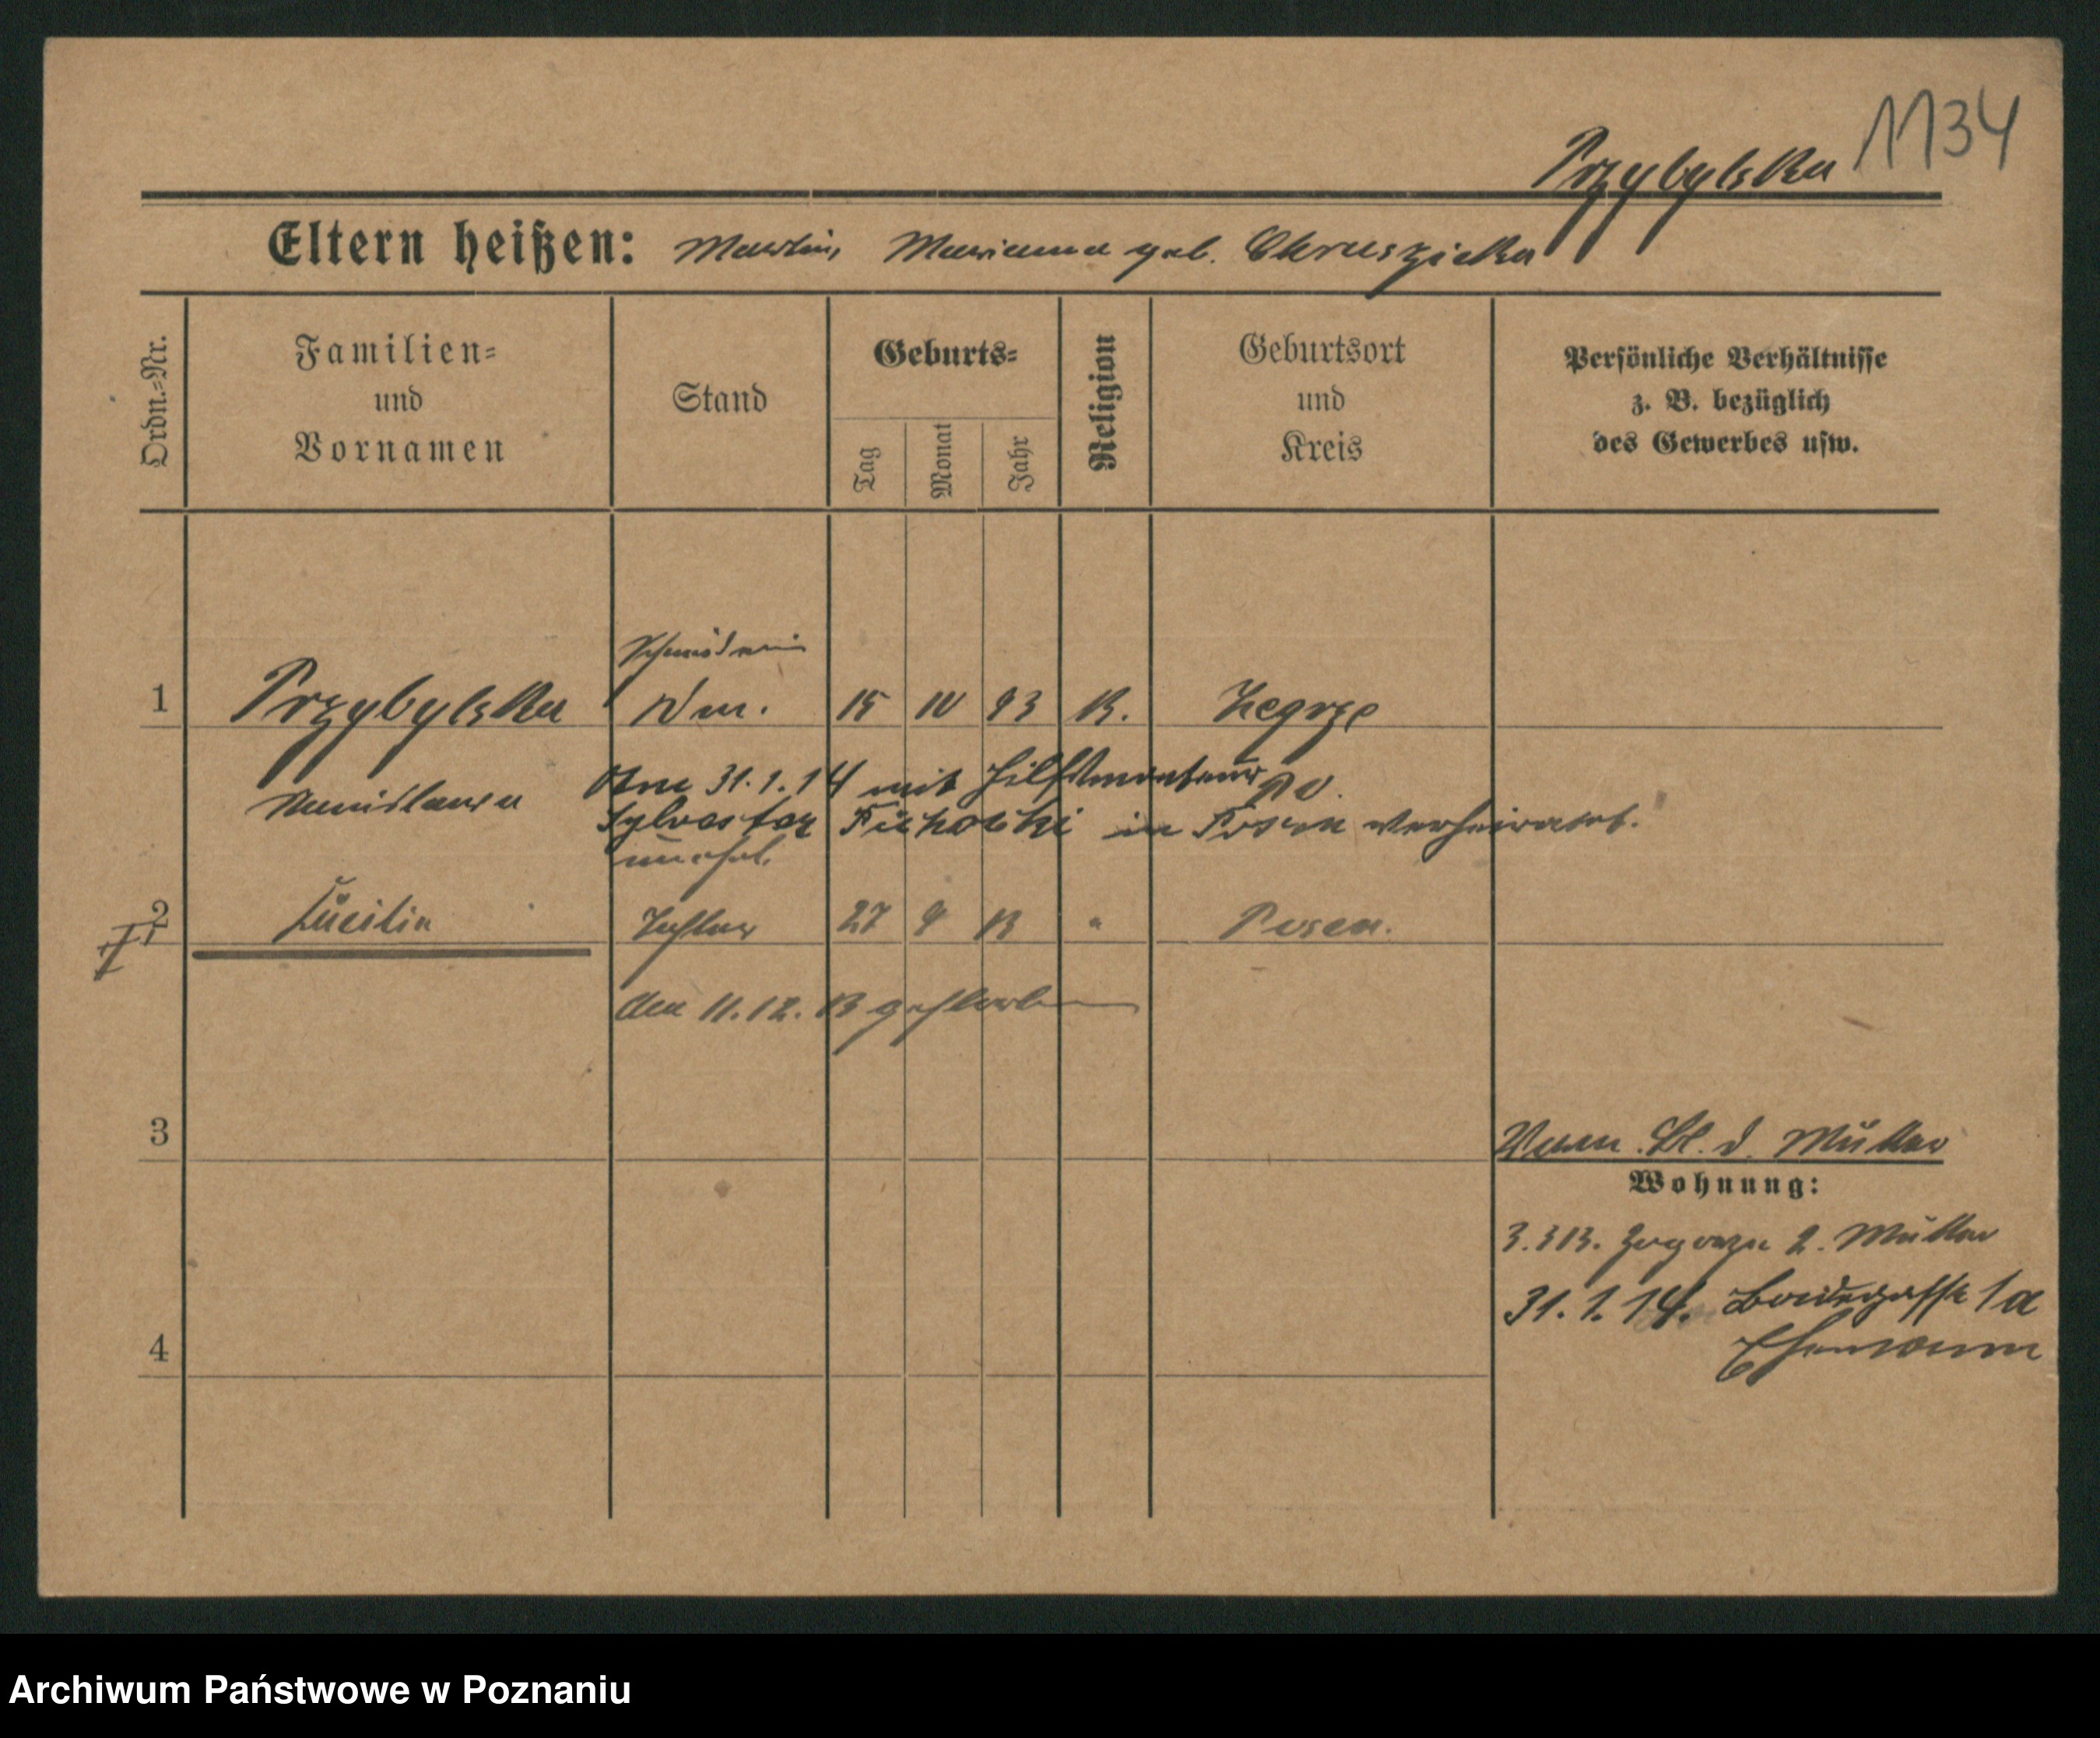 1134
Przybylska
Eltern heißen: Martin, Marianna geb. Chruszicka
Ordn.-Nr.
Familien-
und
Vornamen
Stand
Geburts-
Tag
Monat
Jahr
Religion
Geburtsort
und
Kreis
Persönliche Verhältnisse
z. B. bezüglich
des Gewerbes usw.
Schneiderin
1 Przybylska 15 10 93 K. Zegrze
P.O.
Stanislawa Am 31.1.14 mit Hilfsmonteur
Sylvester in Posen verheiratet.
unehel.
2 Lucilia Tochter 27 9 13 " Posen.
den 11.12.13 gestorben
3
Müller
Wohnung:
3.3.13. 2. Müller
31.1.14. 1a
Ehemann
4
Archiwum Państwowe w Poznaniu